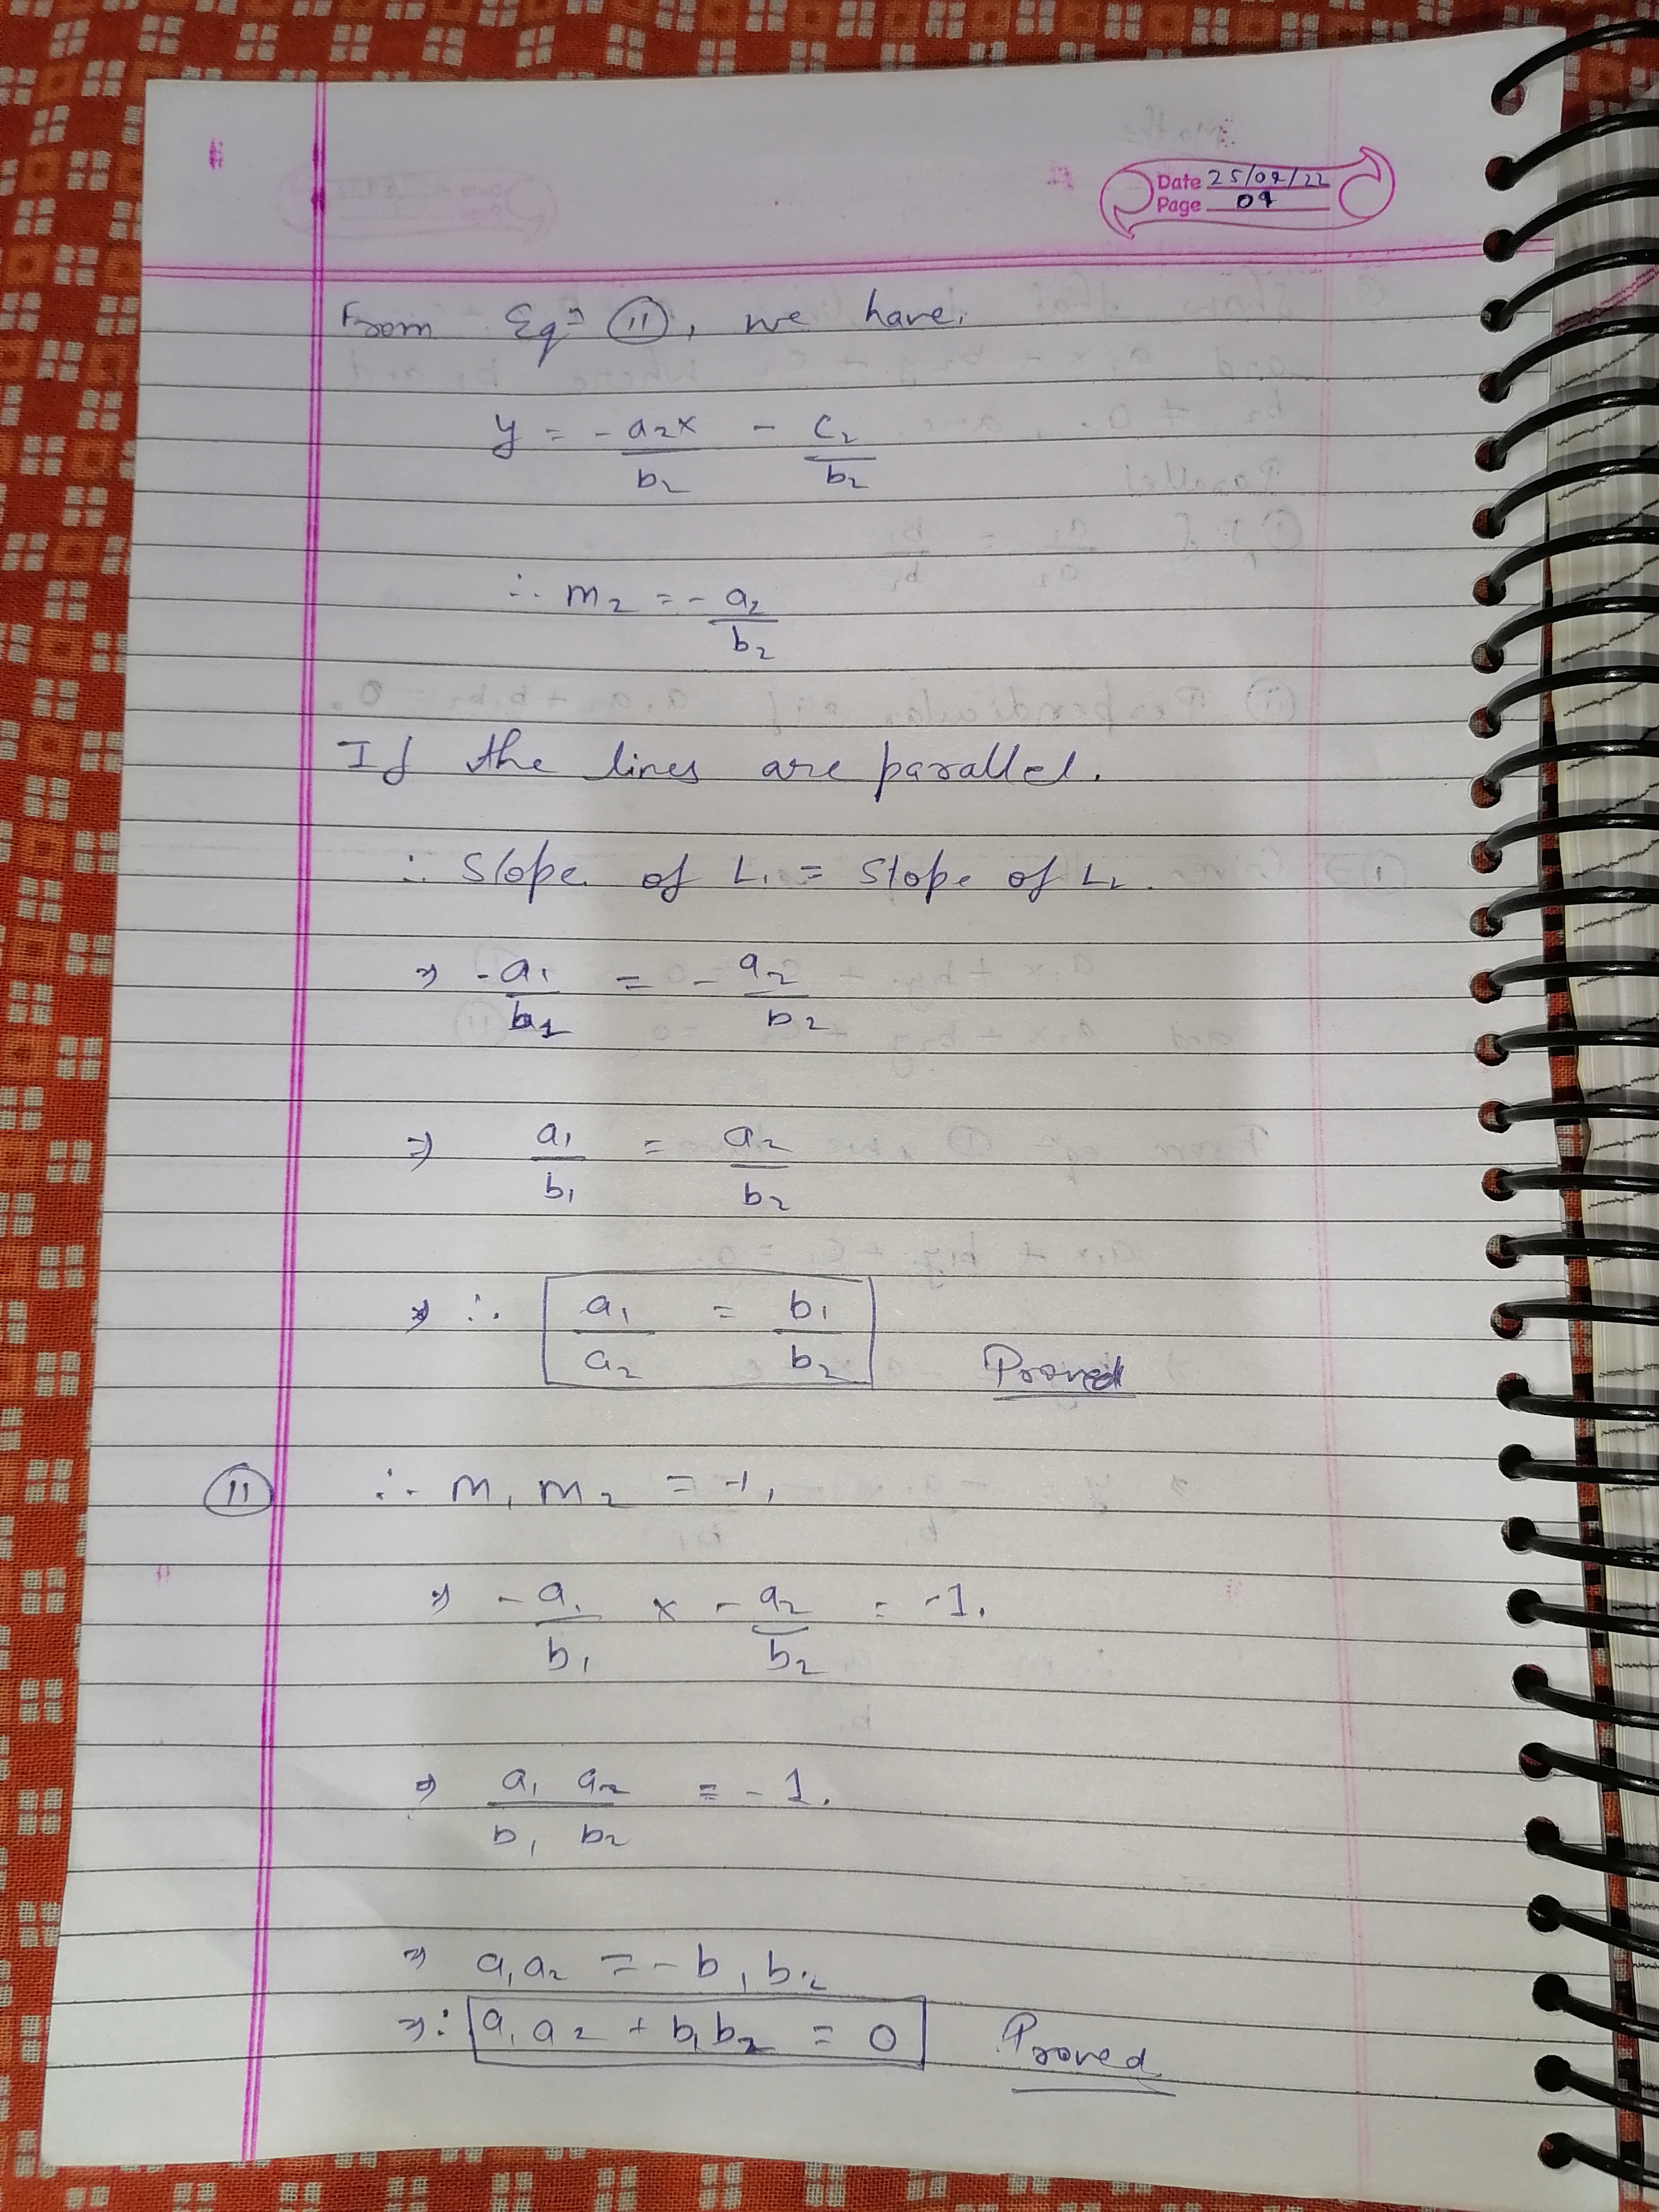 Date 25/07/22
Page 09
From Eqⁿ (II), we have,
y = - a₂x/b₂ - c₂/b₂
∴ m₂ = - a₂/b₂
If the lines are parallel.
∴ Slope of L₁ = Slope of L₂.
⇒ - a₁/b₁ = - a₂/b₂
⇒ a₁/b₁ = a₂/b₂
∴ a₁/a₂ = b₁/b₂ Proved
(II) ∴ m₁ m₂ = -1,
⇒ - a₁/b₁ × - a₂/b₂ = -1.
⇒ a₁ a₂/b₁ b₂ = - 1.
⇒ a₁a₂ = - b₁b₂
⇒ ∴ a₁a₂ + b₁b₂ = 0 Proved